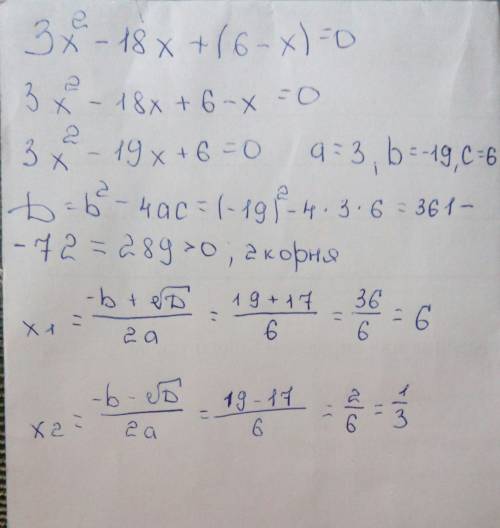 3x² - 18x + (6 - x) = 0
3x² - 18x + 6 - x = 0
3x² - 19x + 6 = 0 a = 3, b = -19, c = 6
D = b² - 4ac = (-19)² - 4 · 3 · 6 = 361 -
- 72 = 289 > 0, 2 корня
x1 = (-b + √D)/2a = (19 + 17)/6 = 36/6 = 6
x2 = (-b - √D)/2a = (19 - 17)/6 = 2/6 = 1/3